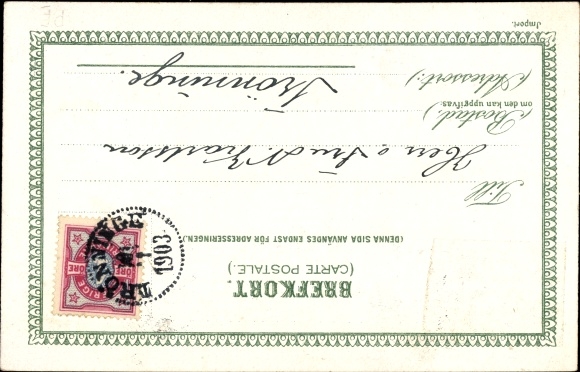 BREFKORT.
(CARTE POSTALE.)
(DENNA SIDA ANVÄNDES ENDAST FÖR ADRESSERINGEN.)
Till
Herr o Fru N. Karlsson
(Bostad:)
om den kan uppgifvas
(Adressort:)
Trönninge.
Import.
TRÖNNINGE
1903
SVERIGE
ÖRE